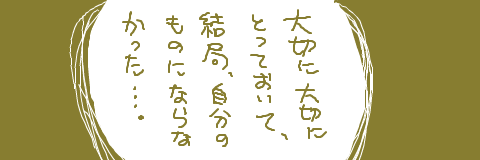 大切に大切に
とっておいて、
結局、自分の
ものにならな
かった…。